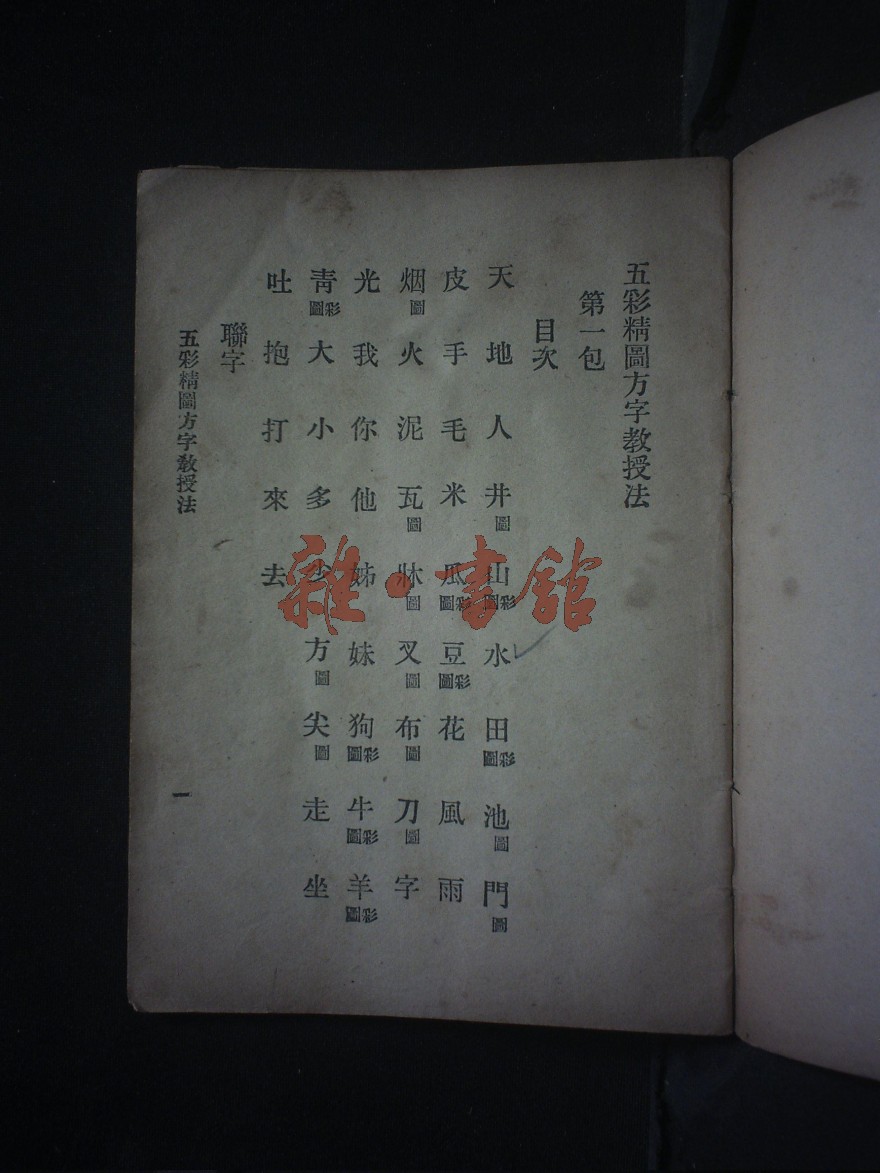 五彩精圖方字教授法
第一包
目次
天 地 人 井圖 山彩圖 水 田彩圖 池圖 門圖
皮 手 毛 米 瓜彩圖 豆彩圖 花 風 雨
烟圖 火 泥 瓦圖 牀圖 叉圖 布圖 刀圖 字
光 我 你 他 姊 妹 狗彩圖 牛彩圖 羊彩圖
靑彩圖 大 小 多 少 方圖 尖圖 走 坐
吐 抱 打 來 去
聯字
五彩精圖方字敎授法
一
雜·書館